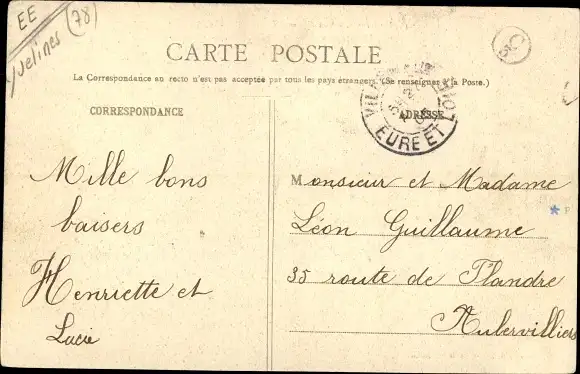 EE
Yvelines (78)
CARTE POSTALE
La Correspondance au recto n'est pas acceptée par tous les pays étrangers. (Se renseigner à la Poste.)
CORRESPONDANCE
ADRESSE
EURE ET LOIR
Mille bons
baisers
Henriette et
Lucie
Monsieur et Madame
Léon Guillaume
35 route de Flandre
Aubervilliers